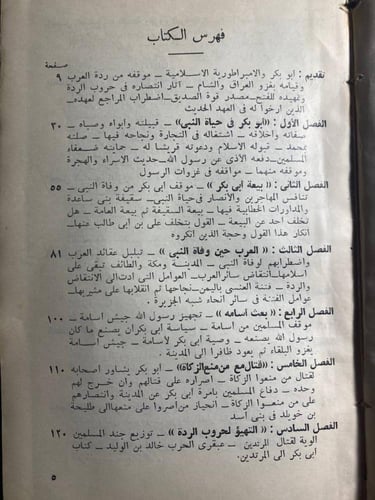 فهرس الكتاب
صفحة
تقديم : ابو بكر والامبراطورية الاسلامية ــ موقفه من ردة العرب ٩
وقيامه بغزو العراق والشام ــ آثار انتصاره في حروب الردة
وتمهيده للفتح ــ مصدر قوة الصديق ــ اضطراب المراجع لعهده ــ
الذين أرخوا له في العهد الحديث
الفصل الأول : «ابو بكر في حياة النبي» ــ قبيلته وابواه وصباه ــ ٣٠
صفاته واخلاقه ــ اشتغاله في التجارة ونجاحه فيها ــ صلته
بمحمد ــ قبوله الاسلام ودعوته قريشا له ــ حمايته ضعفاء
المسلمين ــ دفعه الاذى عن رسول الله ــ حديث الاسراء والهجرة
وموقفه منهما ــ مواقفه في غزوات الرسول
الفصل الثاني : « بيعة ابي بكر » ــ موقف ابي بكر من وفاة النبي ــ ٥٥
تنافس المهاجرين والانصار في حياة النبي ــ سقيفة بني ساعدة
والمداورات الخطابية فيها ــ بيعة السقيفة ثم بيعة العامة ــ هل
تخلف احد عن البيعة ــ القول بتخلف علي بن ابي طالب عنها ــ
انكار هذا القول وحجة الذين انكروه
الفصل الثالث : « العرب حين وفاة النبي » ــ تبلبل عقائد العرب ٨١
واضطرابهم لوفاة النبي ــ المدينة ومكة والطائف تبقى على
اسلامها ــ انتقاض سائر العرب ــ العوامل التي ادت الى الانتقاض
والردة ــ فتنة العنسي باليمن ــ نجاحها ثم انقلابها على مثيريها ــ
عوامل الفتنة في سائر انحاء شبه الجزيرة .
الفصل الرابع : « بعث أسامه » ــ تجهيز رسول الله جيش أسامة ــ ١٠٠
موقف المسلمين من اسامة ــ سياسة ابي بكر ان يصنع ما كان
رسول الله يصنعه ــ وصية ابي بكر لاسامة ــ جيش أسامة
يغزو البلقاء ثم يعود ظافرا الى المدينة .
الفصل الخامس : «قتال مع من منع الزكاة» ــ ابو بكر يشاور اصحابه ١١٠
لقتال من منعوا الزكاة ــ اصراره على قتالهم وان خرج لهم
وحده ــ دفاع المسلمين بامرة ابي بكر عن المدينة وانتصارهم
على من منعوا الزكاة ــ انحياز من اصروا على منعها الى طليحة
بن خويلد في بني أسد
الفصل السادس : « التهيؤ لحروب الردة » ــ توزيع جند المسلمين ١٢٠
الوية لقتال المرتدين ــ عبقري الحرب خالد بن الوليد ــ كتاب
ابي بكر الى المرتدين.
٥